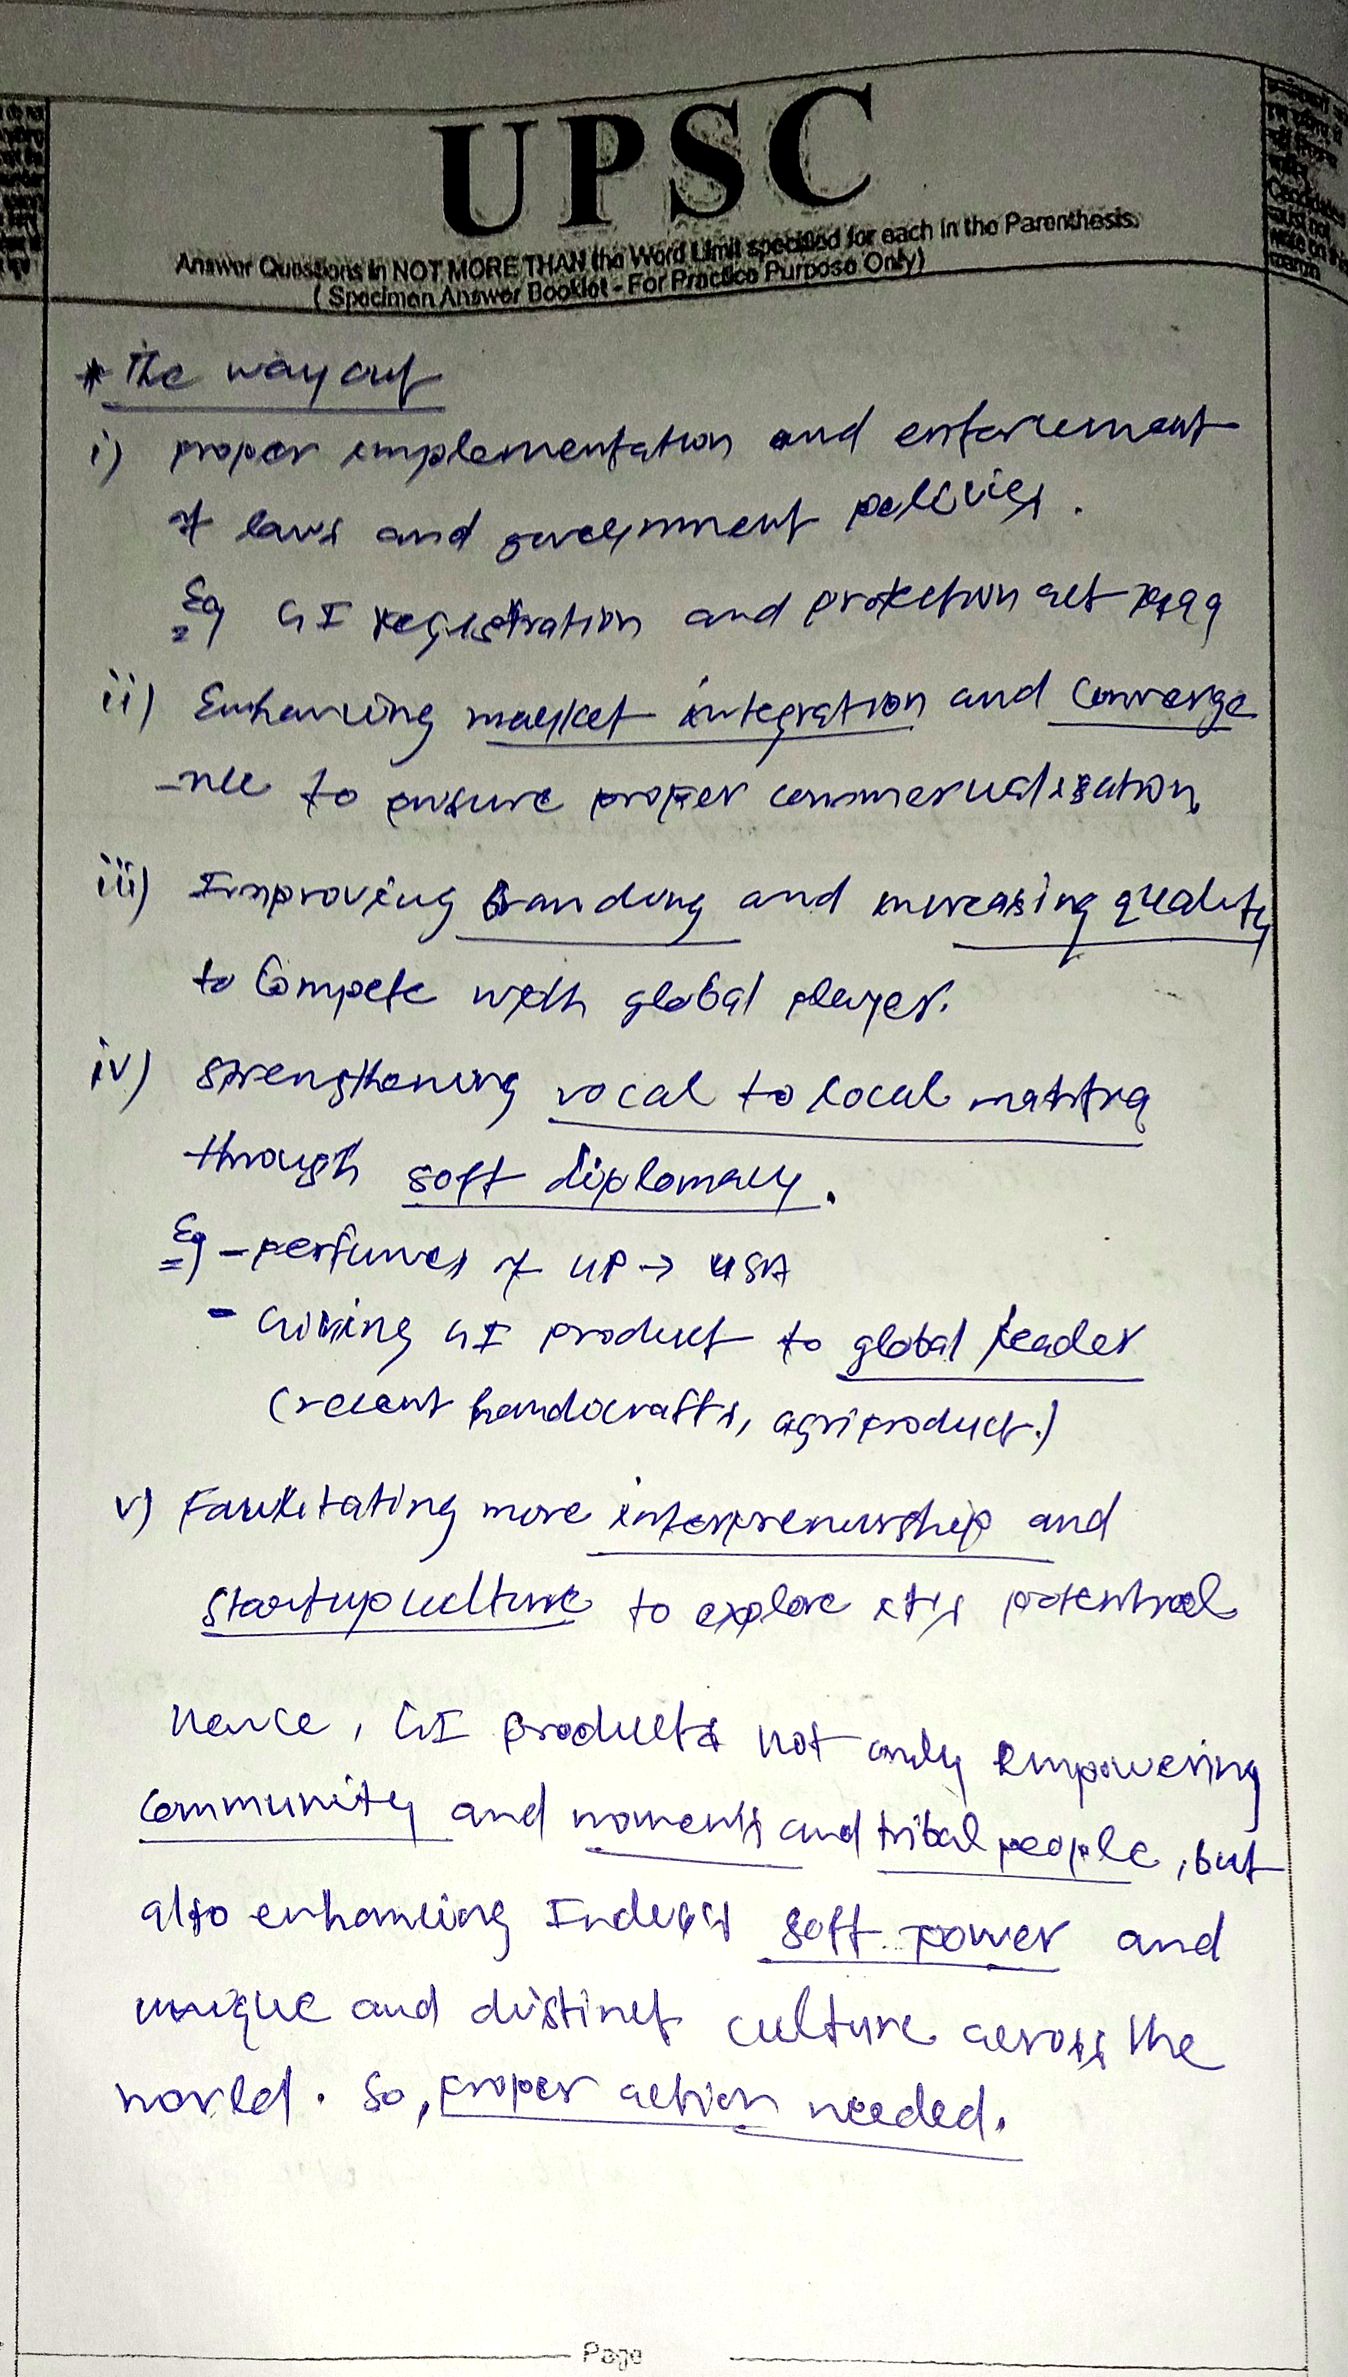 UPSC
Answer Questions in NOT MORE THAN the Word Limit specified for each in the Parenthesis.
( Specimen Answer Booklet - For Practice Purpose Only)
Candidates
must not
write on this
margin
* The way out
i) proper implementation and enforcement
of laws and government policies.
Eg GI registration and protection act 1999
ii) Enhancing market integration and converge
-nce to ensure proper commercialisation,
iii) Improving branding and increasing quality
to Compete with global player.
iv) strengthening vocal to local mantra
through soft diplomacy.
Eg - perfumes of UP → USA
- Giving GI product to global leader
(recent handicrafts, agriproduct.)
v) Facilitating more interpreneurship and
startup culture to explore its potential
Hence, GI products not only empowering
community and womens and tribal people, but
also enhancing India's soft power and
unique and distinct culture across the
world. So, proper action needed.
Page